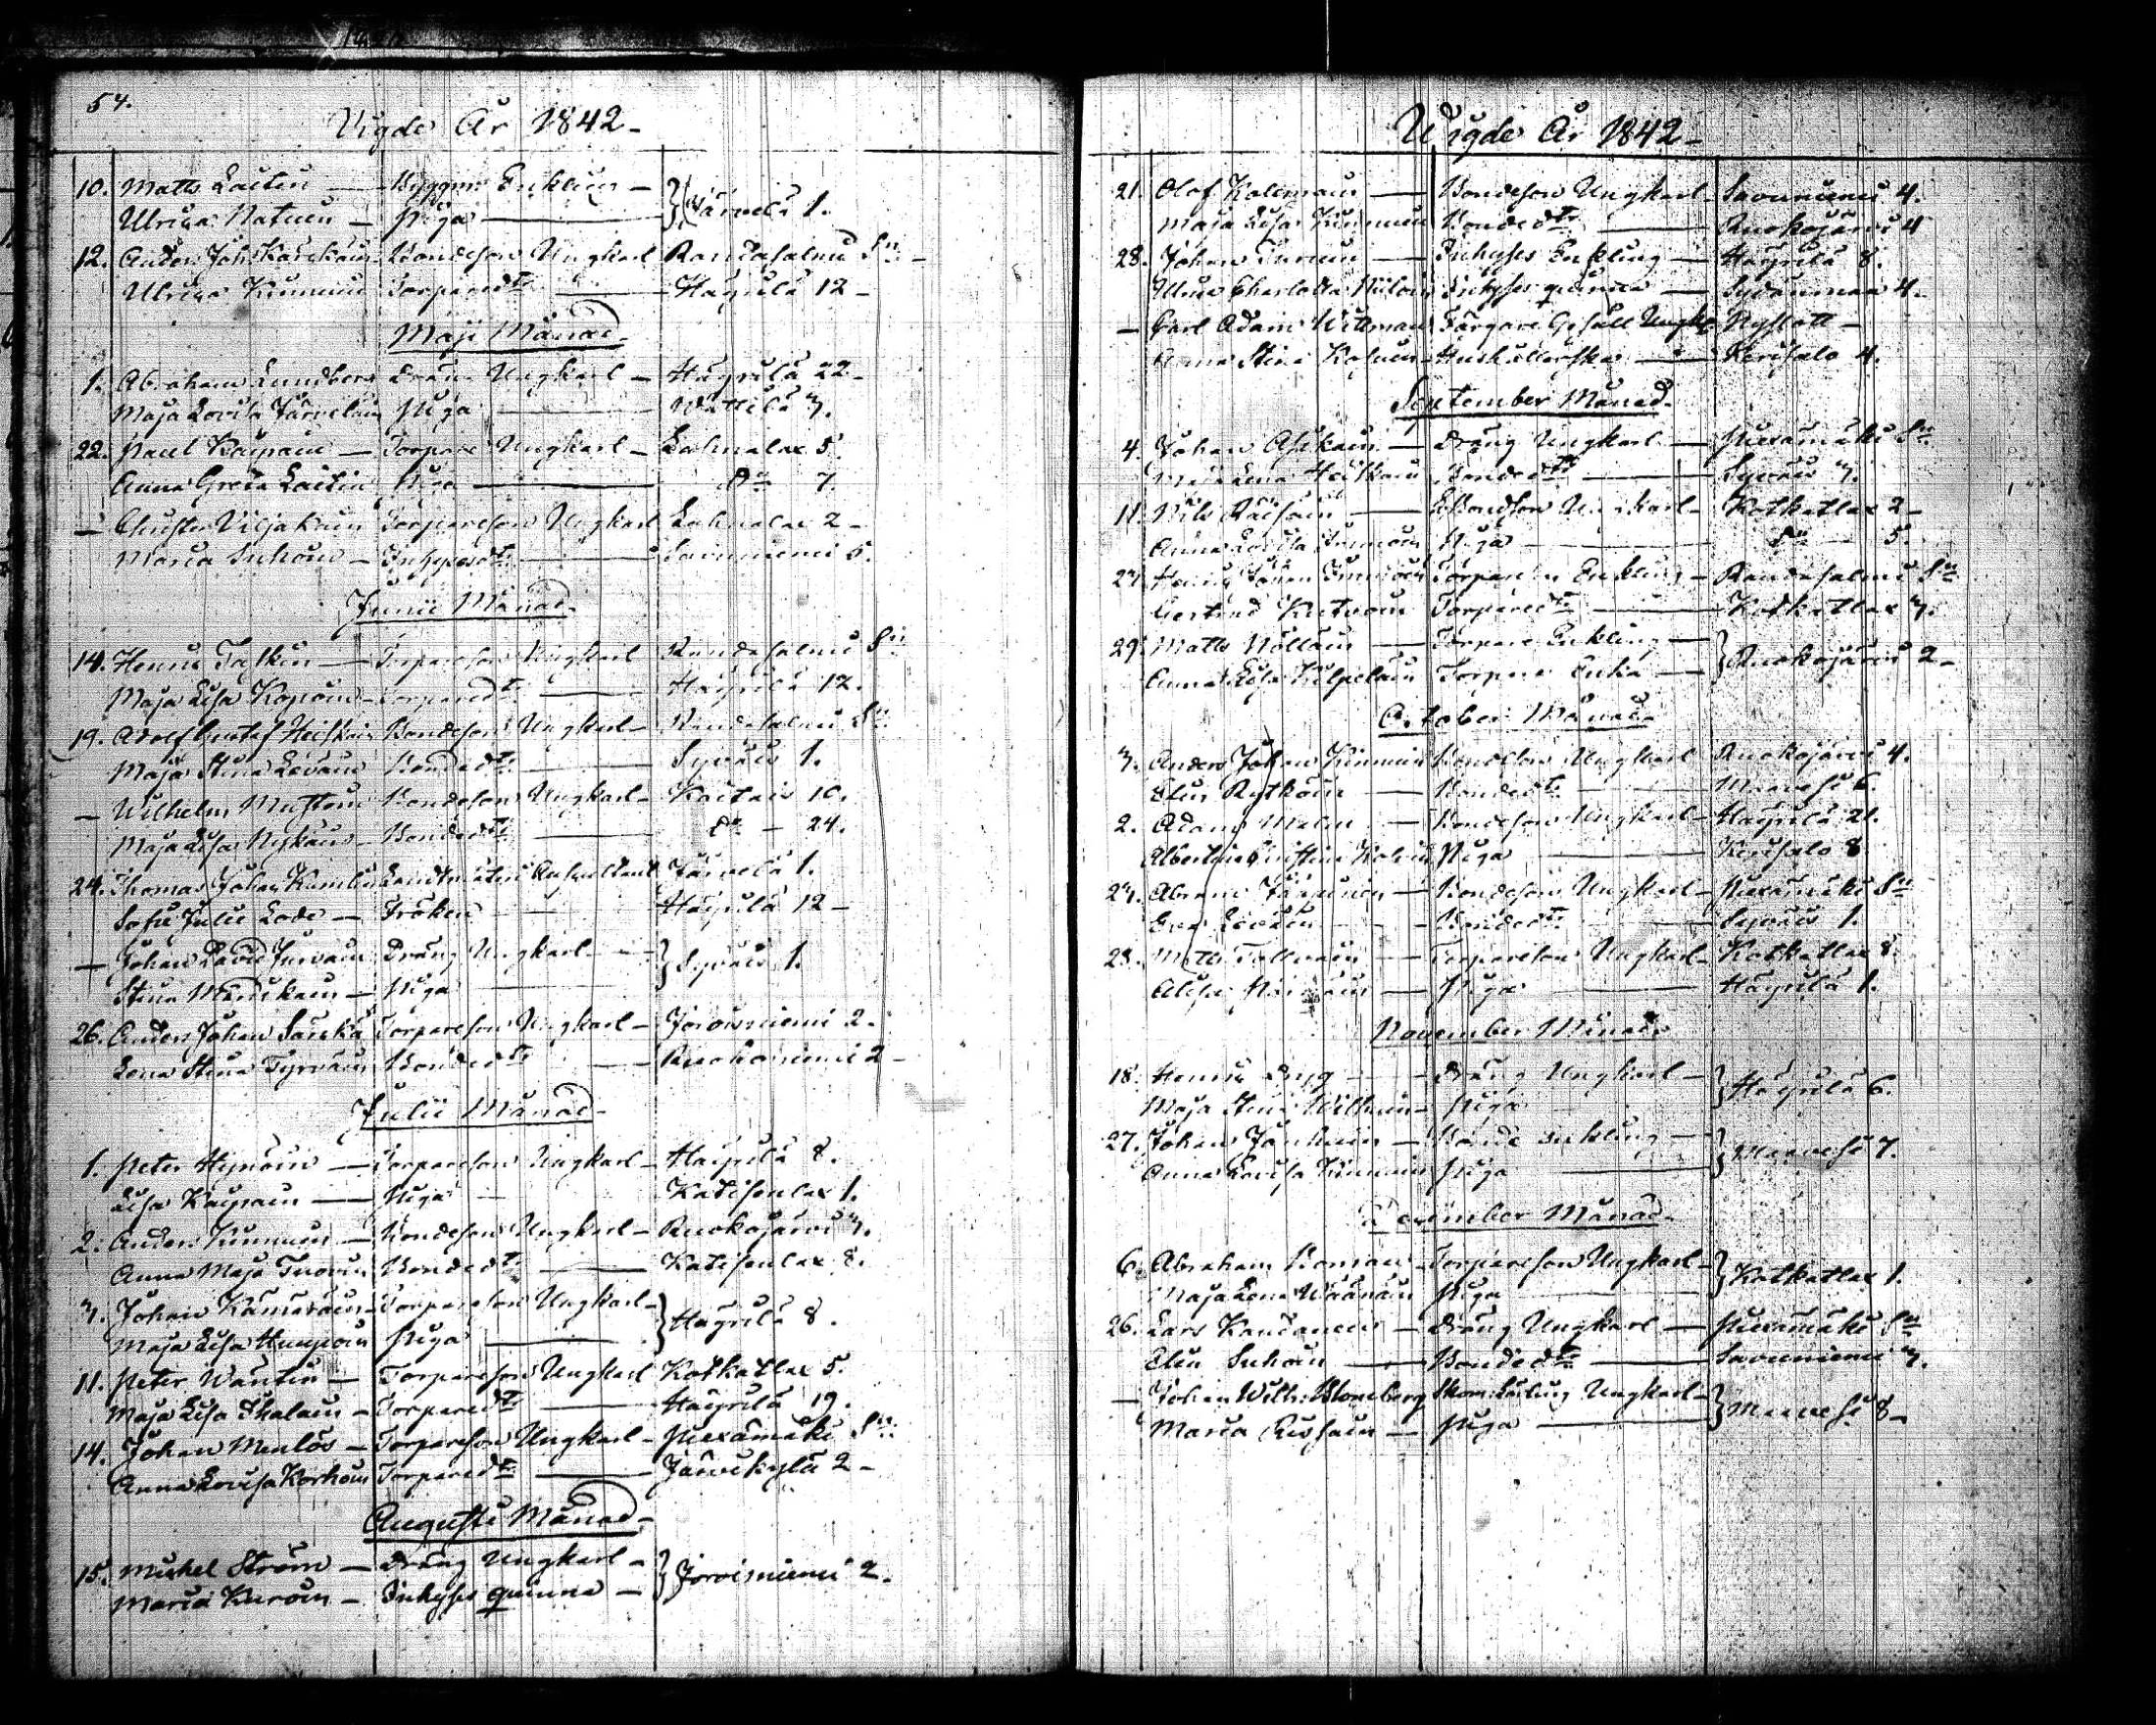 54.
Vigde År 1842
10. Matts Laitin — Byggm: Enkling — } Järvelä 1.
Ulrica Natuin — Piga —
12. Anders Joh: Karhkain Bondeson Ungkarl Randasalmi Sn
Ulrica Kinnuin Torparedr — Häyrilä 12 —
Maji Månad
1. Abraham Lundberg Dräng Ungkarl — Häyrilä 22 —
Maja Lovisa Järveläin Piga — Wättilä 7.
22. Paul Kaipain — Torpare Ungkarl — Lahnalax 5.
Anna Greta Laitin Piga — Do 7.
— Christer Viljakain Torpareson Ungkarl Lahnalax 2 —
Maria Suhoin — Inhysesdr — Savuniemi 5.
Junii Månad
14. Henric Taskin — Torpareson Ungkarl Randasalmi Sn
Maja Lisa Kopoin — Torparedr — Häyrilä 12.
19. Adolf Gustaf Heiskain Bondeson Ungkarl — Randasalmi Sn
Maja Stina Leväin Bondedr — Syväis 1.
— Wilhelm Mustoin Bondeson Ungkarl — Kaitais 10.
Maja Lisa Nykäin — Bondedr — Do — 24.
24. Thomas Johan Landtmäteri Auscultant Järvelä 1.
Sofie Julie Lode — Fröken — Häyrilä 12 —
— Johan David Dräng Ungkarl — } Syväis 1.
Stina — Piga
26. Anders Johan Torpareson Ungkarl — Joroisniemi 2.
Lena Stina Tyrväin Bondedr — Ruokoniemi 2 —
Julii Månad
1. Peter Hynöin — Torpareson Ungkarl — Häyrilä 8.
Lisa Kaipain — Piga — Katisenlax 1.
2. Anders Kinnuin — Bondeson Ungkarl — Ruokojärvi 7.
Anna Maja Tuovin Bondedr — Katisenlax 8.
7. Johan Kämäräin — Torpareson Ungkarl — } Häyrilä 8.
Maja Lisa Piga —
11. Peter Wäntin — Torpareson Ungkarl Kotkatlax 5.
Maja Lisa Ihalain — Torparedr — Häyrilä 19.
14. Johan Menlös — Torpareson Ungkarl — Piexämäki Sn
Anna Lovisa Korhoin Torparedr — Järvikylä 2 —
Augusti Månad
15. Michel Ström — Dräng Ungkarl — } Joroisniemi 2.
Maria Kuroin — Inhyses quinna —
Wigde År 1842
21. Olof Kolemain — Bondeson Ungkarl Savuniemi 4.
Maja Lisa Kinnuin Bondedr — Ruokojärvi 4
28. Johan — Inhyses Enkling — Häyrilä 8.
Ulrica Charlotta Inhyses quinna — Sydänmaa 4.
— Carl Adam Wittman Färgare Gesäll Ungkl Nyslott —
Anna Stina Hushållerska — Kerisalo 4.
September Månad
4. Johan Asikain — Dräng Ungkarl — Piexämäki Sn
Maja Lena Heiskain Bondedr — Syväis 7.
11. Nils Räisäin — Bondson Ungkarl — Kotkatlax 2 —
Anna Lovisa Immoin Piga — Do 5.
27. Henric Johan Immoin Torpare Enkling — Randasalmi Sn
Gertrud Kutvoin Torparedr — Kotkatlax 7.
29. Matts Nölläin — Torpare Enkling — } Ruokojärvi 2 —
Anna Lisa Kilpeläin Torpare Enka —
October Månad
Anders Johan Kinnuin Bondeson Ungkarl Ruokojärvi 4.
Elin Rytköin — Bondedr — Maavesi 6.
2. Adam Malin — Bondeson Ungkarl — Häyrilä 21.
Albertina Piga — Kerisalo 8
Abram — Bondeson Ungkarl — Piexämäki Sn
Eva Leväin — Bondedr — Syväis 1.
28. Matts — Torpareson Ungkarl — Kotkatlax 8.
— Piga — Häyrilä 1.
November Månad
18. Henric Dryg — Dräng Ungkarl — } Häyrilä 6.
Maja Stina — Piga
27. Johan — Bonde Enkling — } Maavesi 7.
Anna Lovisa Kinnuin Piga —
December Månad
6. Abraham Roman — Torpareson Ungkarl — } Kotkatlax 1.
Maja Lena Wäänäin Piga —
26. Lars — Dräng Ungkarl — Piexämäki Sn
Elin Suhoin — Bondedr — Savuniemi 7.
— Johan Wilh: Blomberg Skom: Lärling Ungkarl — } Maavesi 8 —
Maria — Piga —